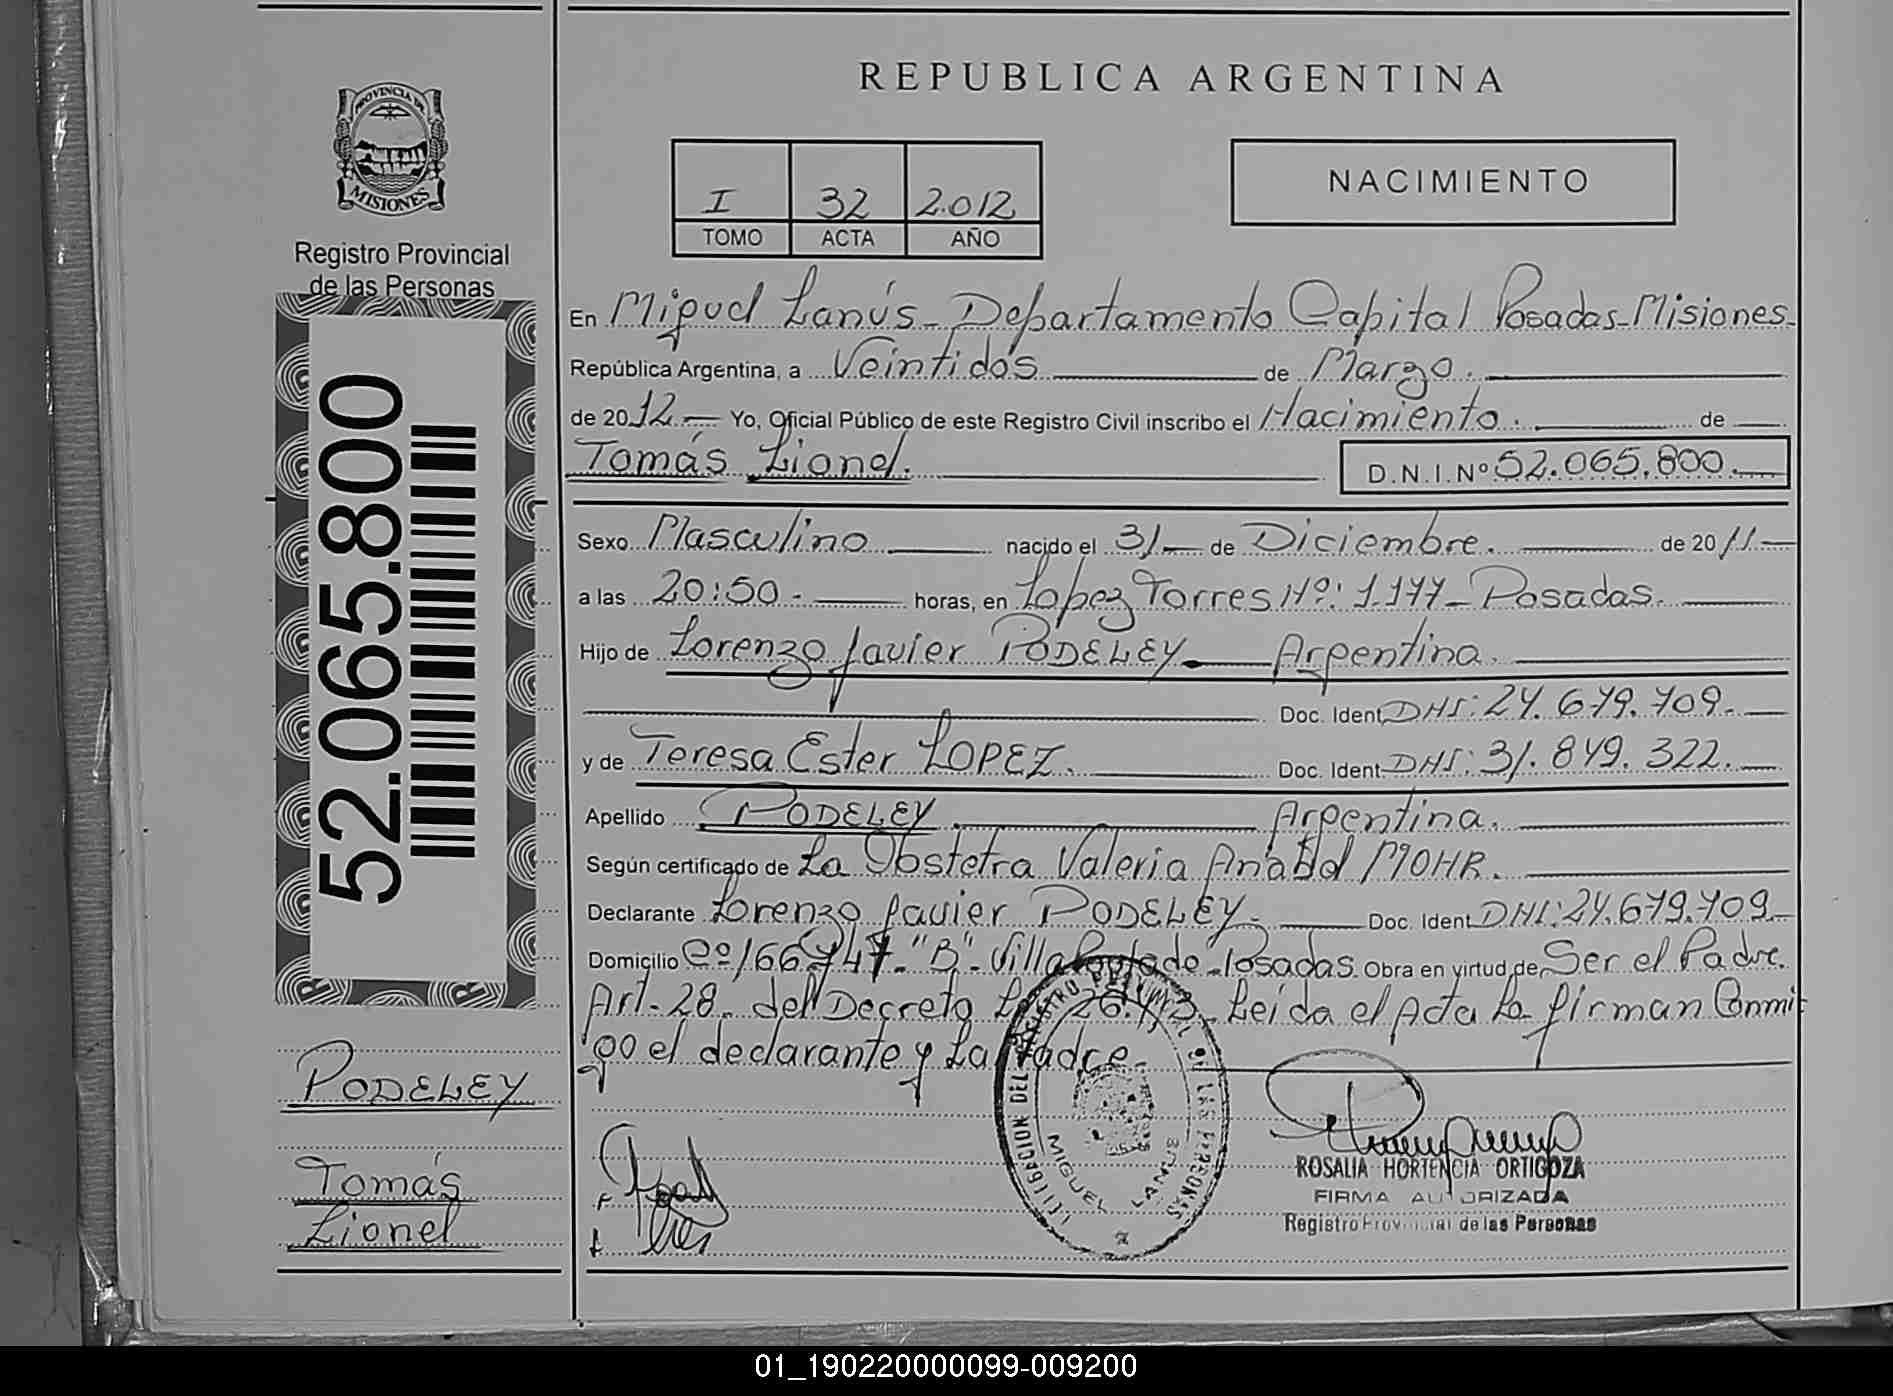 REPUBLICA ARGENTINA
PROVINCIA DE
MISIONES
Registro Provincial
de las Personas
I 32 2.012
TOMO ACTA AÑO
NACIMIENTO
52.065.800
En Miguel Lanús - Departamento Capital Posadas - Misiones -
República Argentina, a Veintidós de Marzo.
de 2012 - Yo, Oficial Público de este Registro Civil inscribo el Nacimiento. de
Tomás Lionel. D.N.I.Nº 52.065.800.
Sexo Masculino nacido el 31 - de Diciembre. de 2011 -
a las 20:50 - horas, en Lopez Torres Nº: 1.177 - Posadas.
Hijo de Lorenzo Javier PODELEY - Argentina.
Doc. Ident. DNI: 24.679.709.-
y de Teresa Ester LOPEZ. Doc. Ident. DNI: 31.849.322.-
Apellido PODELEY. Argentina.
Según certificado de La Obstetra Valeria Anabel MOHR.
Declarante Lorenzo Javier PODELEY.- Doc. Ident. DNI: 24.679.709-
Domicilio Cº/66 - "B" - Villa Posadas. Obra en virtud de Ser el Padre.
Art. 28. del Decreto - Leida el Acta La firman Conmi
go el declarante y La Madre
PODELEY
Tomás
Lionel
DELEGACION DEL REGISTRO PROVINCIAL DE LAS PERSONAS
MIGUEL LANUS
ROSALIA HORTENCIA ORTIGOZA
FIRMA AUTORIZADA
Registro Provincial de las Personas
01_190220000099-009200